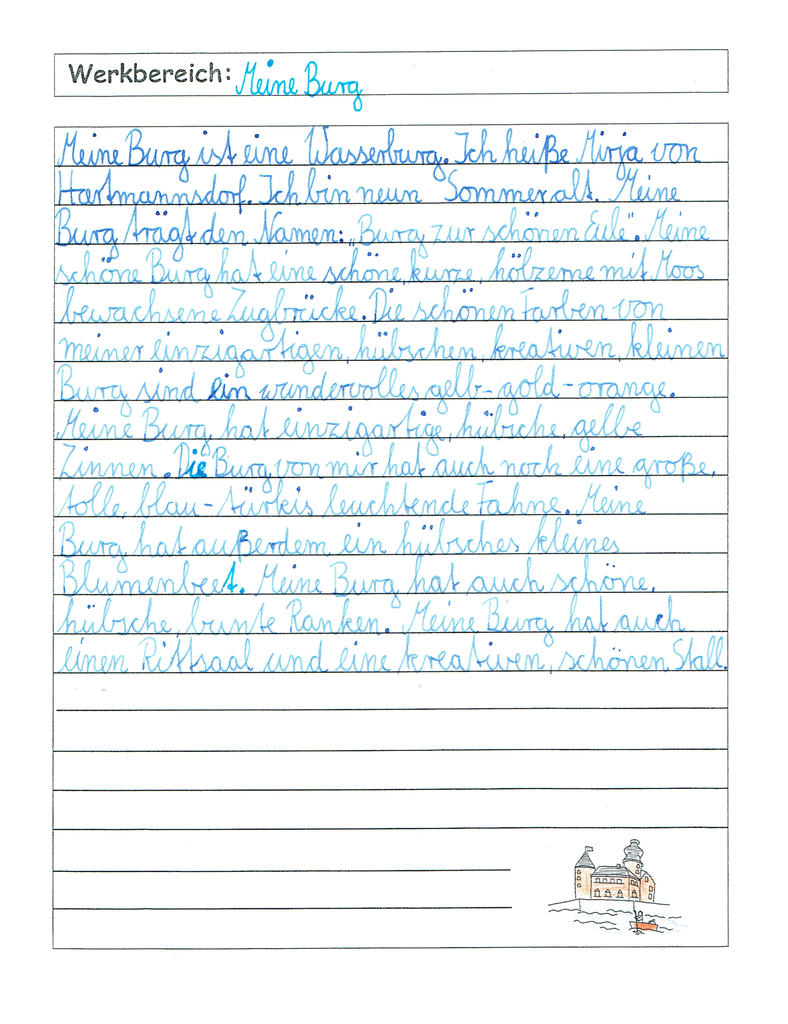 Werkbereich: Meine Burg
Meine Burg ist eine Wasserburg. Ich heiße Mirja von
Hartmannsdorf. Ich bin neun Sommer alt. Meine
Burg trägt den Namen: „Burg zur schönen Eule". Meine
schöne Burg hat eine schöne, kurze, hölzerne mit Moos
bewachsene Zugbrücke. Die schönen Farben von
meiner einzigartigen, hübschen, kreativen, kleinen
Burg sind ein wundervolles gelb-gold-orange.
Meine Burg hat einzigartige, hübsche, gelbe
Zinnen. Die Burg von mir hat auch noch eine große,
tolle, blau-türkis leuchtende Fahne. Meine
Burg hat außerdem ein hübsches kleines
Blumenbeet. Meine Burg hat auch schöne,
hübsche, bunte Ranken. Meine Burg hat auch
einen Rittsaal und eine kreativen, schönen Stall.